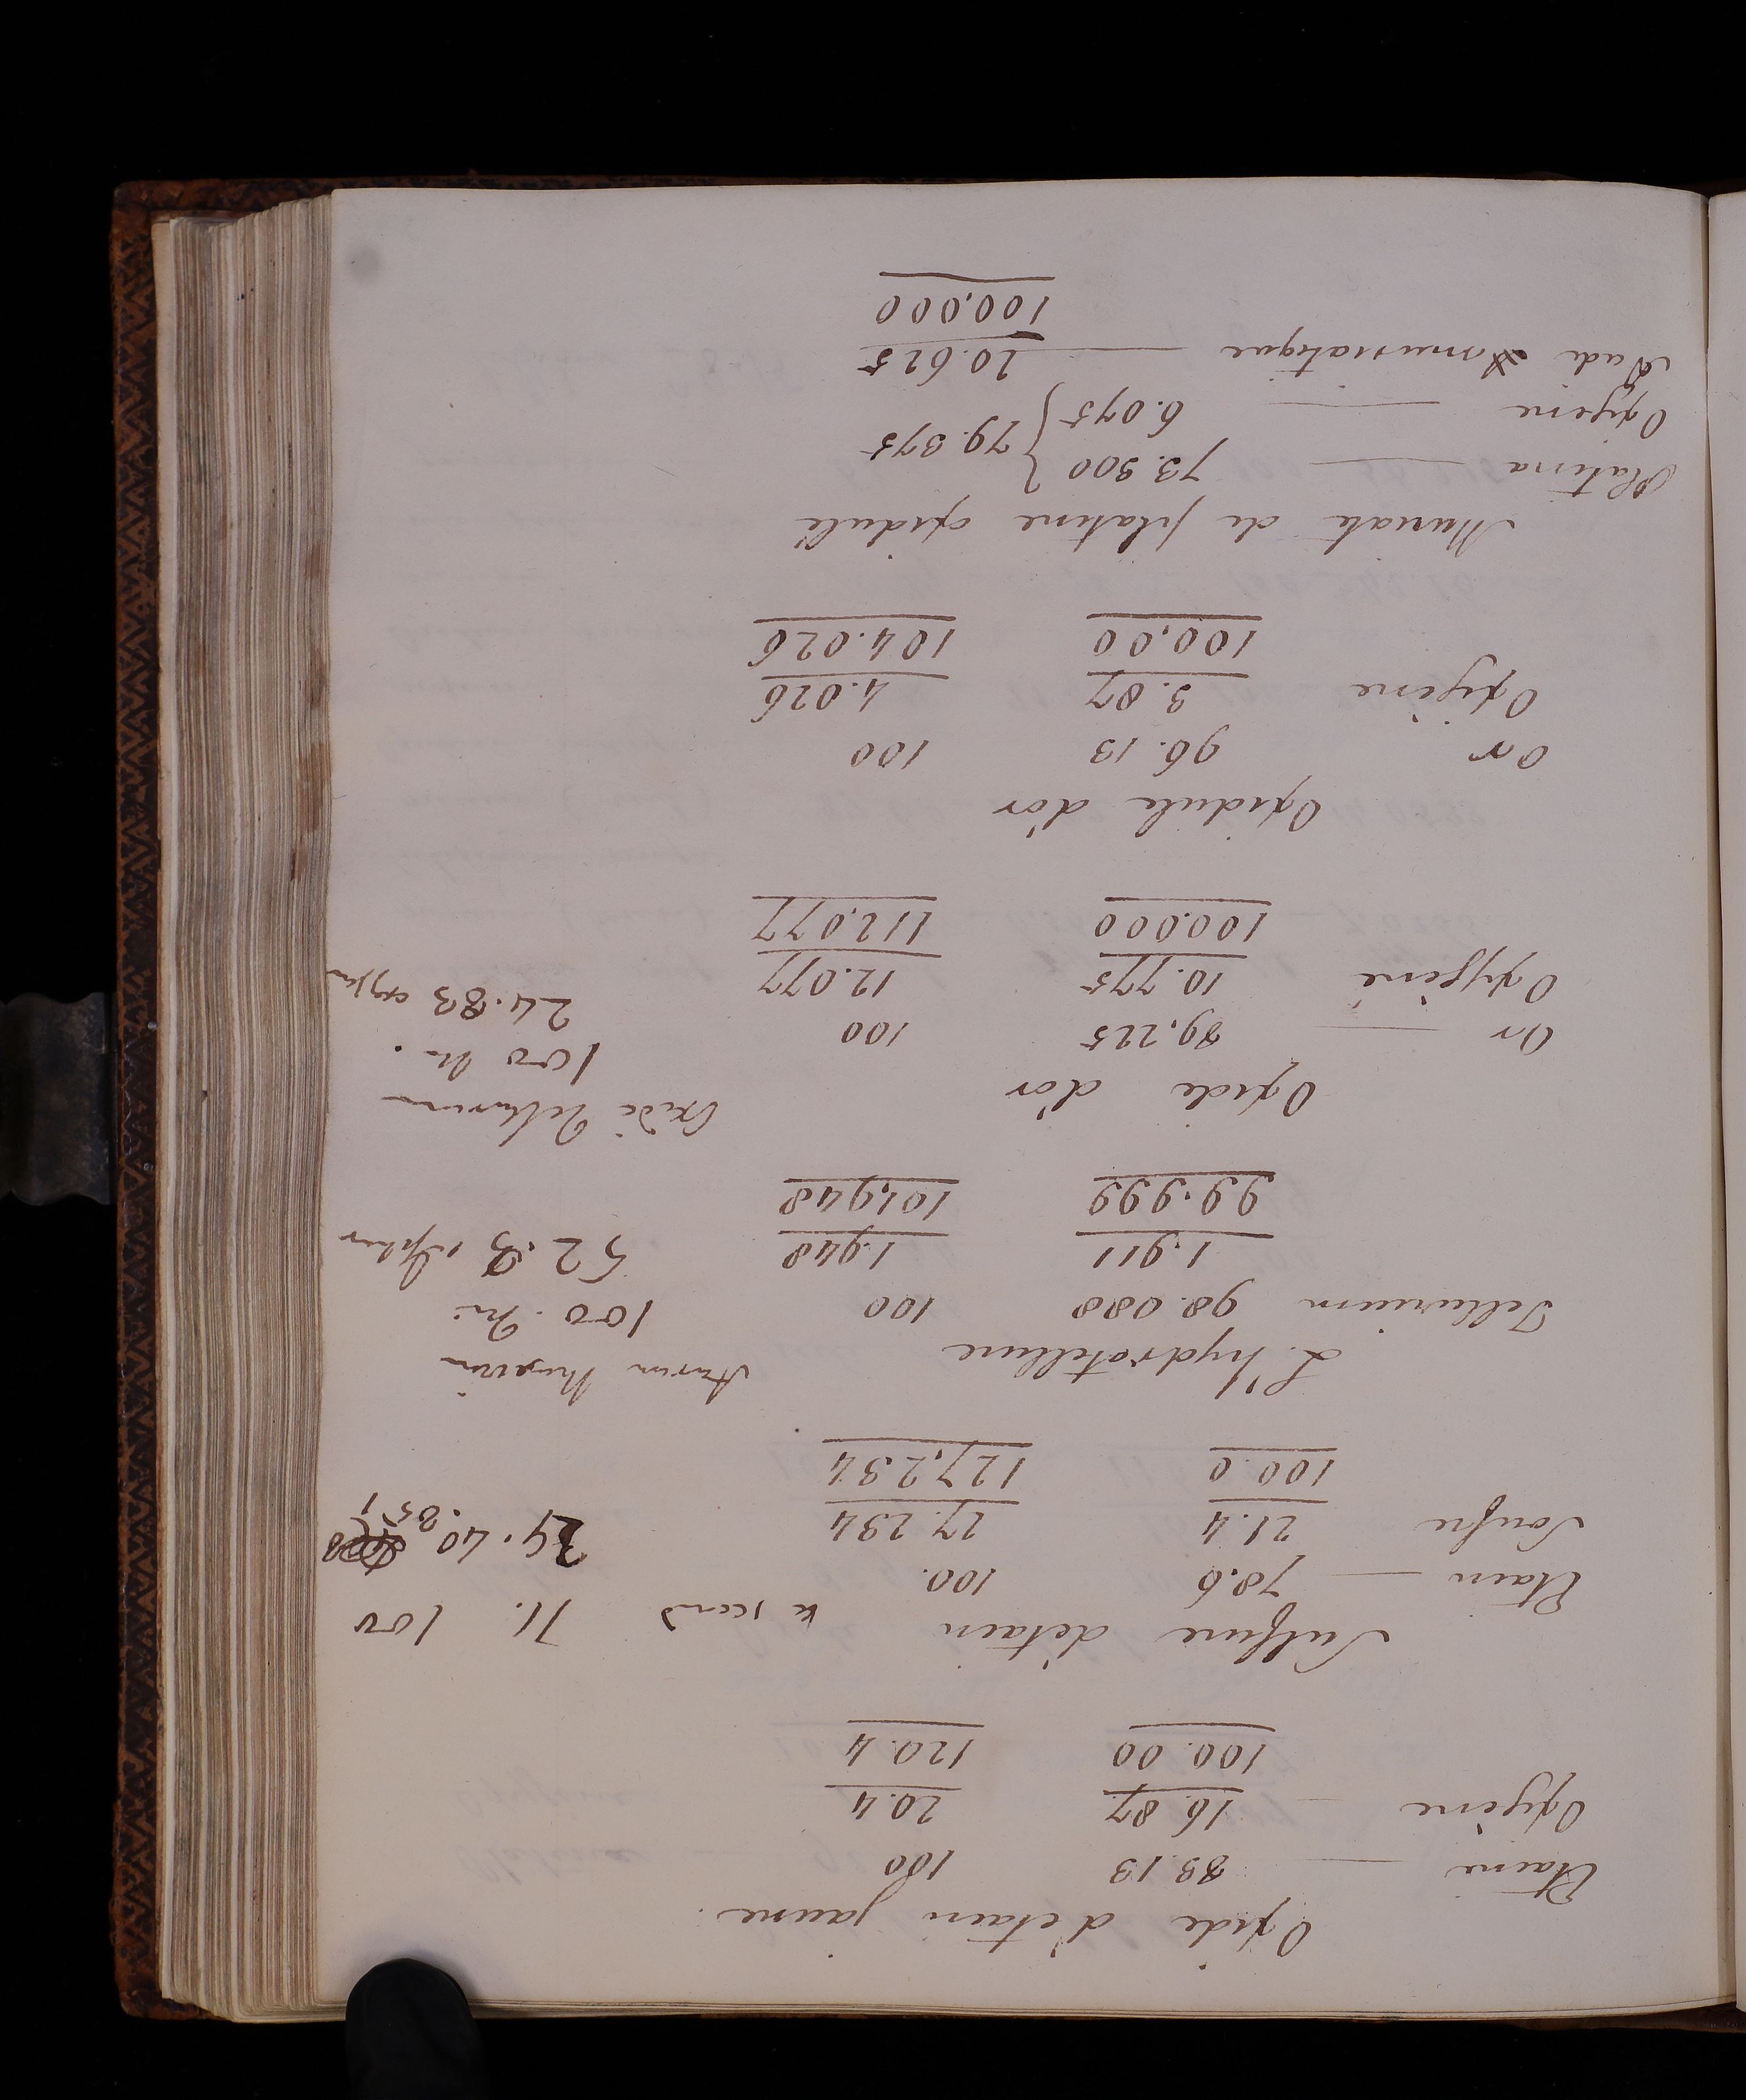 Oxide d'etain jaune.
Etaine — 83.13 100
Oxigène — 16.87 20.4
100.00 120.4
Sulfure détain
Etain — 78.6 100.
Soufre 21.4 27.234
100.0 127,234
100
24.40.
L'hydrotellure
Tellurium 98.088 100
1.911 1.948
99.999 101,948
Aurum
100.
52.3 sulphur
Oxide d'or
Or — 89,225 100
Oxygène 10.775 12.077
100.000 112.077
Oxide Tellurium
100
24.83 oxygen
Oxidule d'or
Or 96.13 100
Oxigène 3.87 4.026
100,00 104.026
Muriate de platine oxidulé
Platina — 73.300 } 79.375
Oxigene — 6.075
Acide muriatique — 20.625
100.000